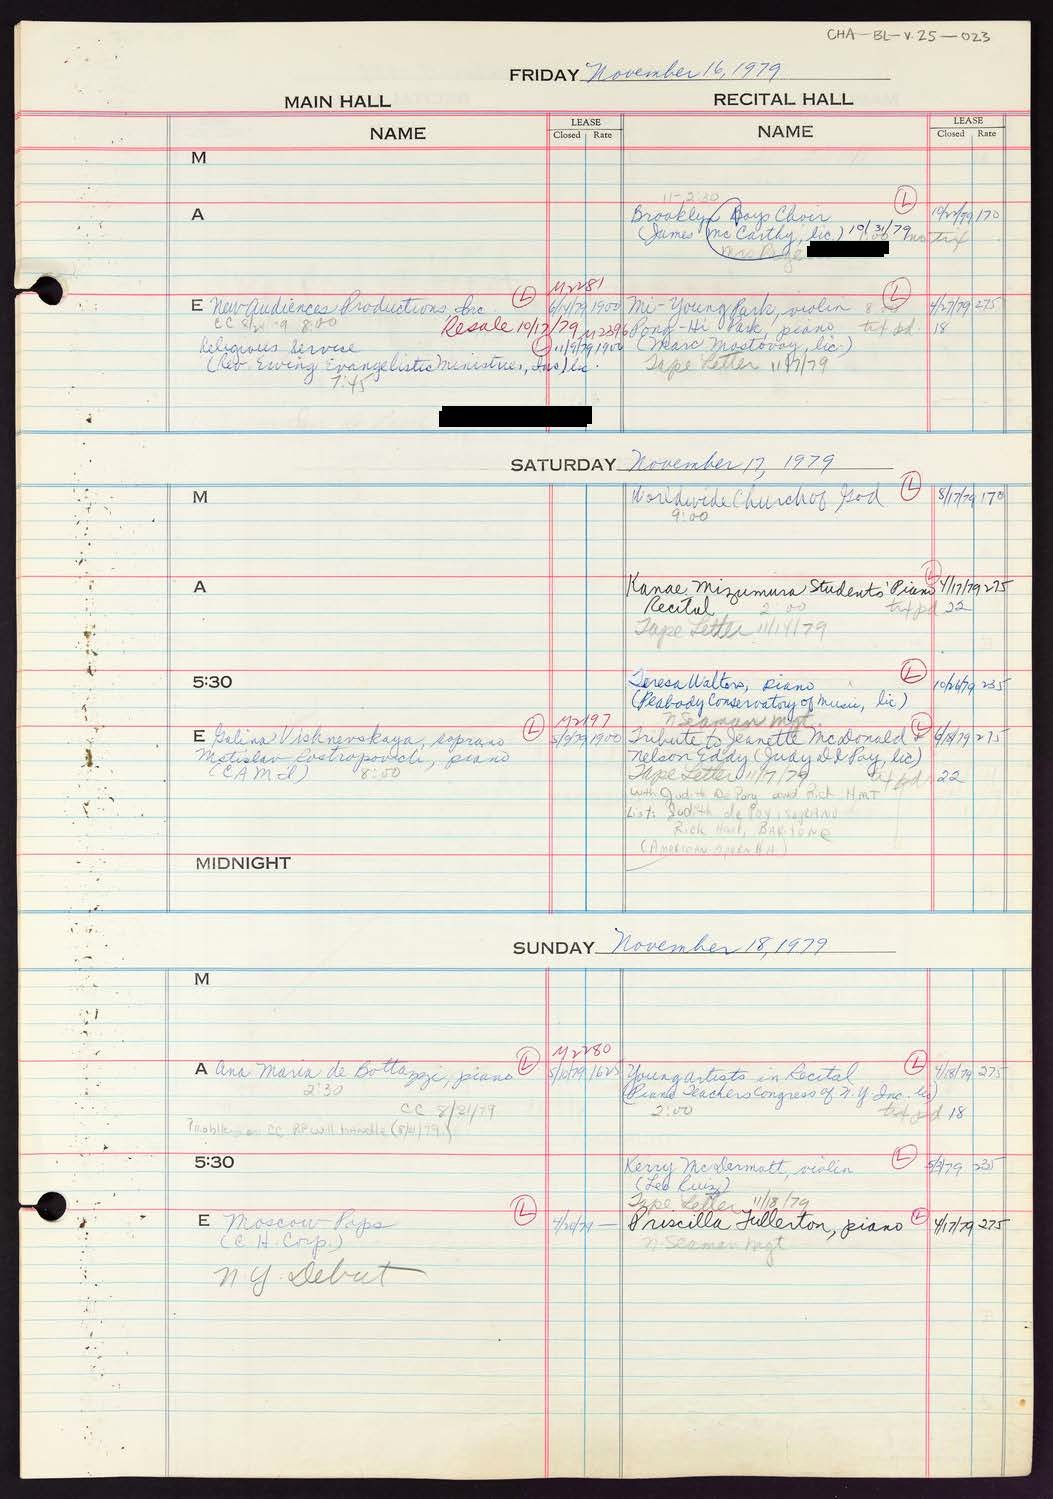 CHA-BL-V.25-023
FRIDAY November 16, 1979
MAIN HALL
RECITAL HALL
NAME
LEASE
Closed Rate
NAME
LEASE
Closed Rate
M
11-2:30
A
Brooklyn Boys Choir (L) 170
(James McCarthy, lic.) 10/31/79 no tix
M2281
E New Audiences Productions, Inc (L) 6/14/79 1900
CC 8:00
Resale 10/17/79 M2396
Religious Service (L) 11/9/79 1900
(Rev. Ewing Evangelistic Ministries, Inc) lic.
7:45
Mi-Young Park, violin (L) 4/27/79 275
Pong-Hi Park, piano txt pd. 18
(Marc Mostovoy, lic.)
Tape Letter 11/7/79
SATURDAY November 17, 1979
M
Worldwide Church of God (L) 8/17/79 170
9:00
A
Kanae Mizumura Students' Piano (L) 4/17/79 275
Recital 2:00 txt pd 22
Tape Letter 11/14/79
5:30
Teresa Walters, piano (L) 10/26/79 235
(Peabody Conservatory of Music, lic)
N Seaman Mgt.
M2197
E Galina Vishnevskaya, soprano (L) 5/9/79 1900
Mstislav Rostropovich, piano
(CAMI) 8:00
Tribute to Jeanette McDonald & (L) 275
Nelson Eddy (Judy De Poy, lic)
Tape Letter 11/7/79 txt pd 22
with Judith De Poy and Rick
List: Judith de Poy, soprano
Rick, BARITONE
(AMERICAN OPERA)
MIDNIGHT
SUNDAY November 18, 1979
M
M2280
A Ana Maria de Bottazzi, piano (L) 1625
2:30
CC 8/21/79
CC RP will handle (8/21/79)
Young Artists in Recital (L) 4/18/79 275
(Piano Teachers Congress of N.Y. Inc. lic)
2:00 txt pd 18
5:30
Kerry McDermott, violin (L) 235
(Leo Ruiz)
Tape Letter 11/8/79
E Moscow Pops (L)
(C.H. Corp.)
NY Debut
Priscilla Fullerton, piano (L) 4/17/79 275
N Seaman Mgt